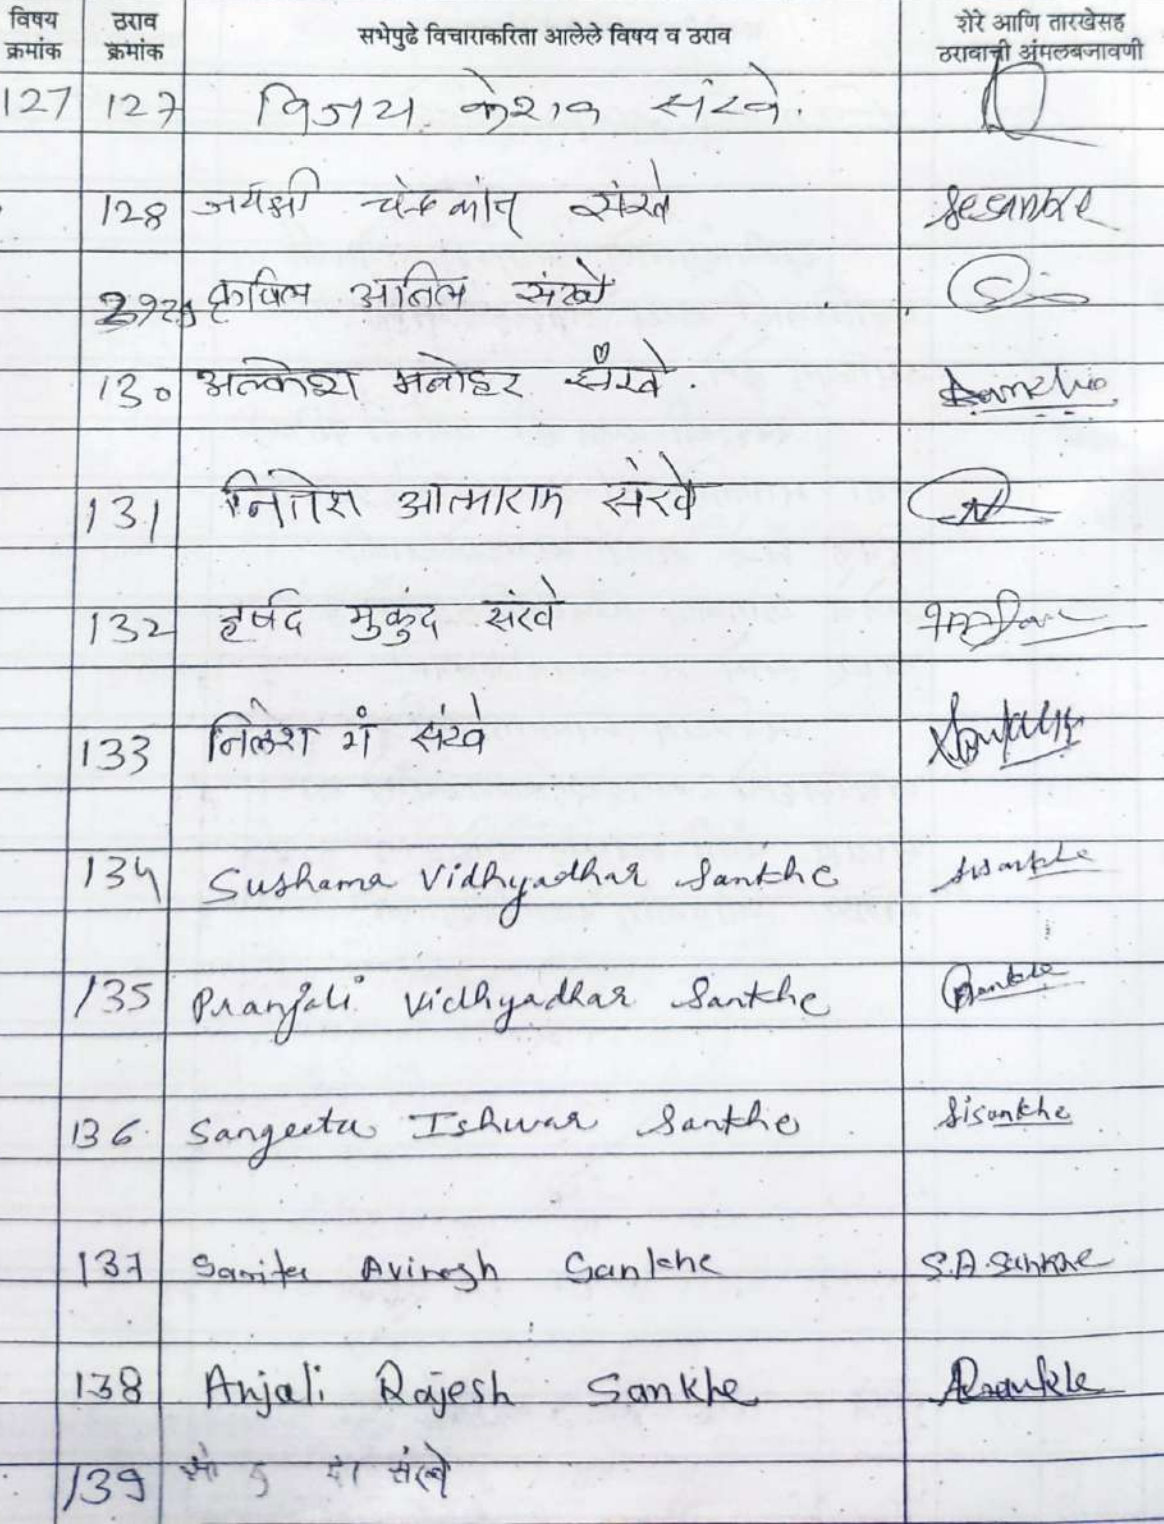 विषय क्रमांक ठराव क्रमांक सभेपुढे विचाराकरिता आलेले विषय व ठराव शेरे आणि तारखेसह ठरावाची अंमलबजावणी
127 127 विजय केशव संखे.
128 जयश्री चंद्रकांत संखे
कपिल अनिल संखे
130 अल्केश मनोहर संखे. Sankhe
131 नितेश आत्माराम संखे
132 हर्षद मुकुंद संखे
133 निलेश गं संखे
134 Sushama Vidhyadhar Sankhe
135 Pranjali Vidhyadhar Sankhe
136 Sangeeta Ishwar Sankhe Sisankhe
137 Sanita Avinash Sankhe S.A.Sankhe
138 Anjali Rajesh Sankhe
139 संखे